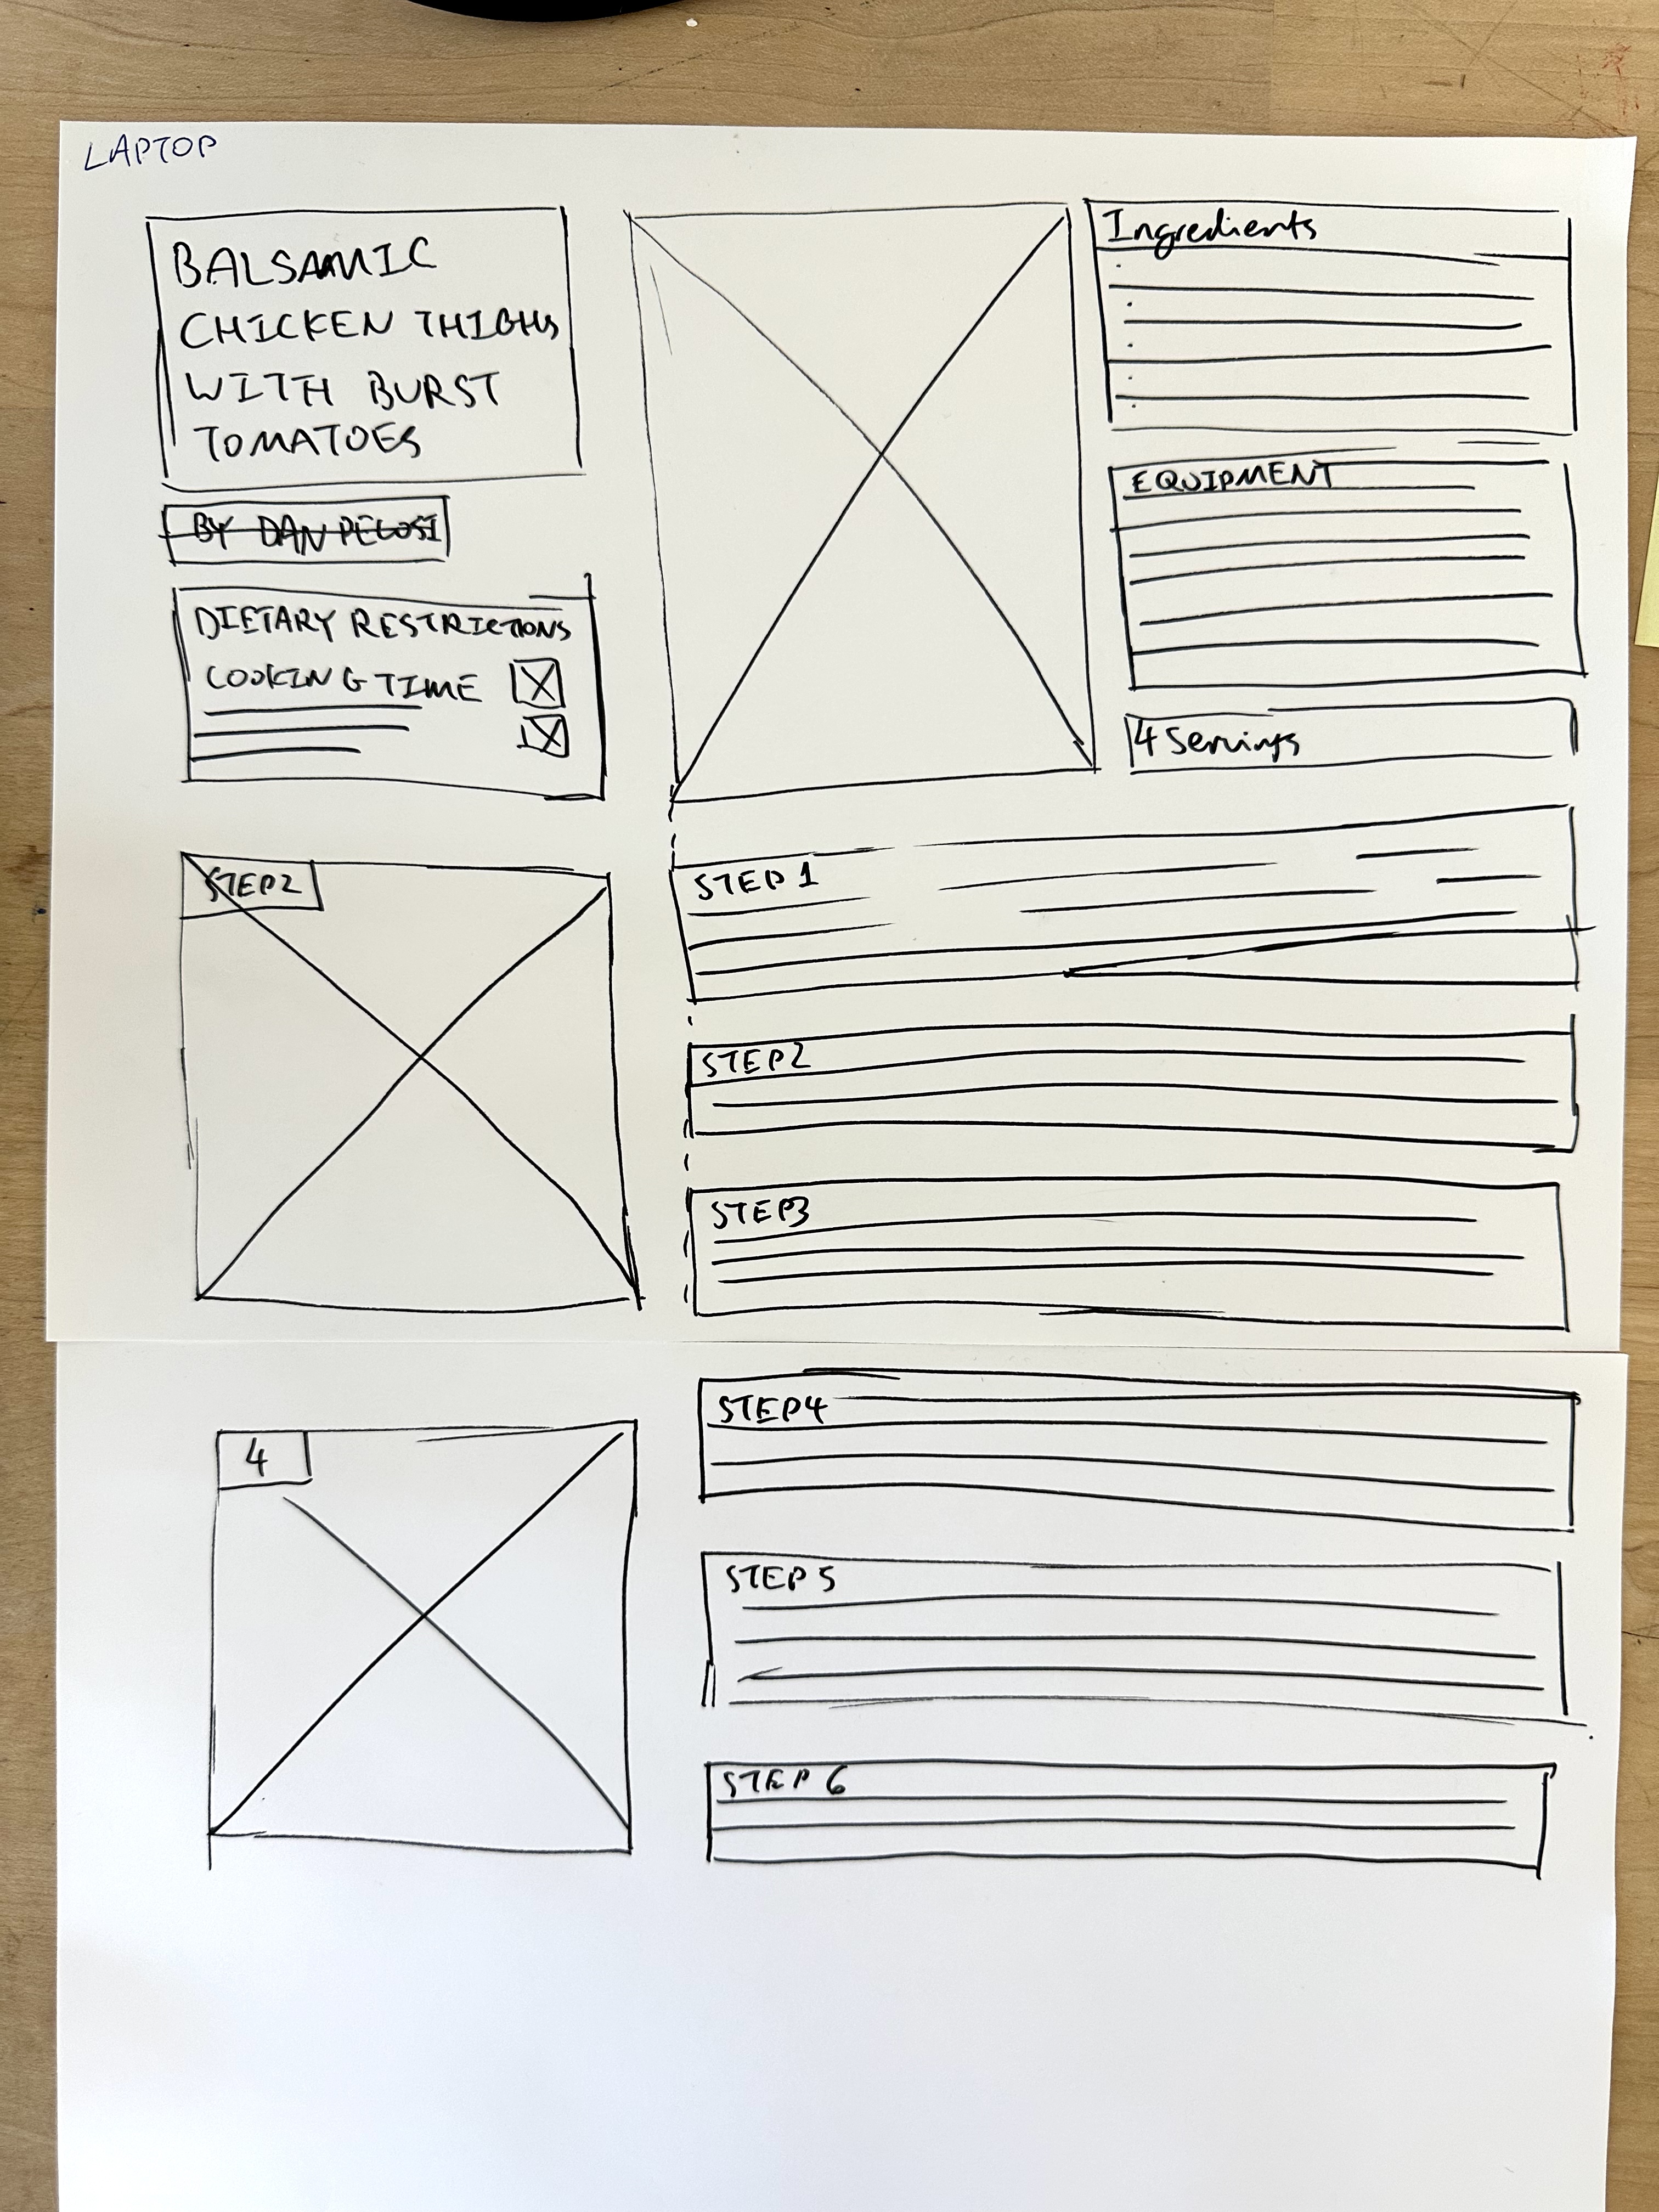 LAPTOP
BALSAMIC
CHICKEN THIGHS
WITH BURST
TOMATOES
BY DAN PELOSI
DIETARY RESTRICTIONS
COOKING TIME
Ingredients
EQUIPMENT
4 Servings
STEP2
STEP 1
STEP2
STEP3
4
STEP4
STEP 5
STEP 6